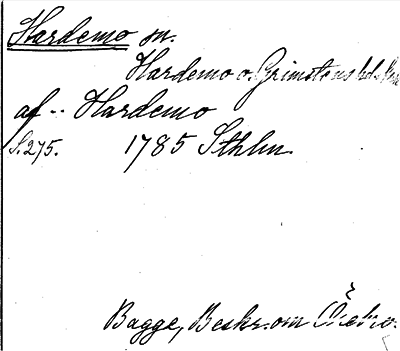 Hardemo sn.
Hardemo o. Grimstens hd
af -- Hardemo
S. 275. 1785 Sthlm
Bagge, Beskr. om Örebro.